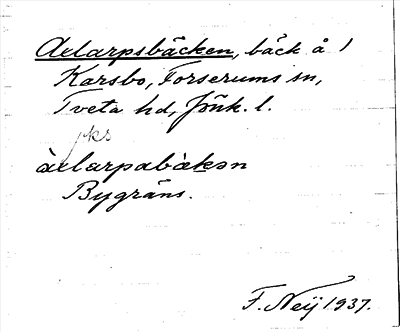 Aelarpsbäcken, bäck å 1
Karsbo, Forserums sn,
Tveta hd, Jönk. l.
jks
àelarpabàkən
Bygräns.
F. Neij 1937.